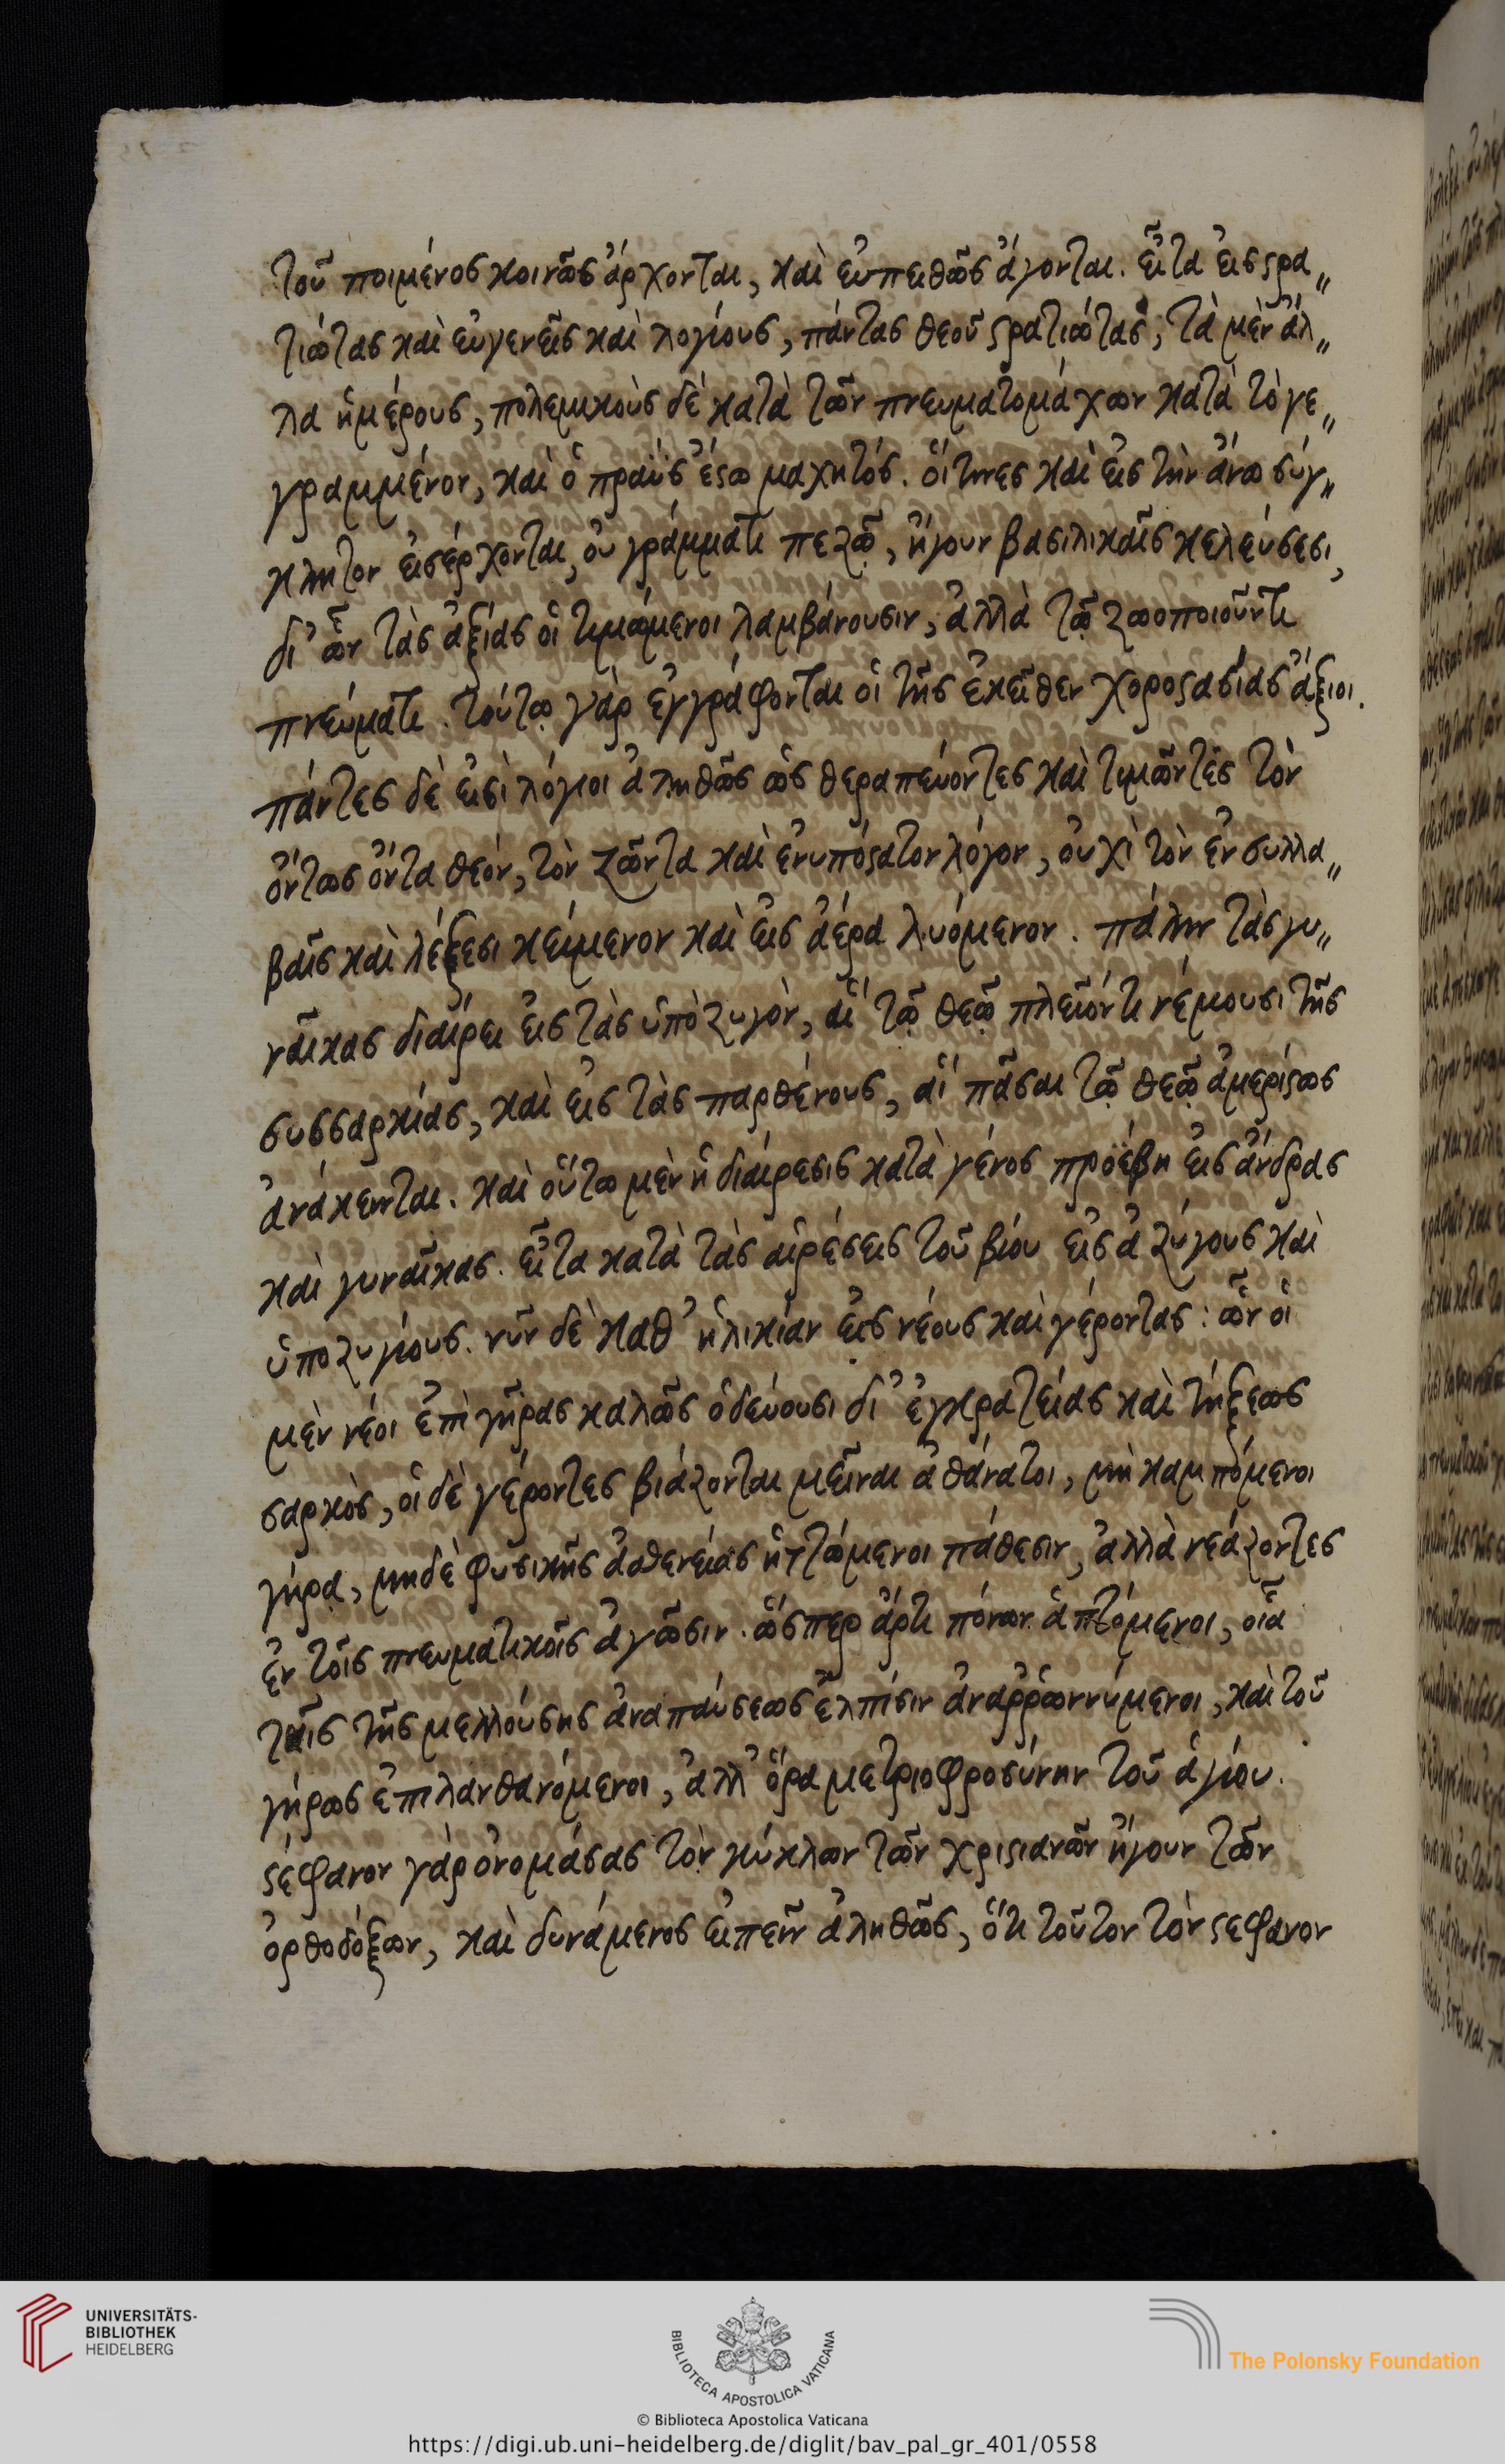 τοῦ ποιμένος κοινῶς ἄρχονται, καὶ εὐπειθῶς ἄγονται. εἶτα εἰς στρα„
τιώτας καὶ εὐγενεῖς καὶ λογίους, πάντας θεοῦ στρατιώτας, τὰ μὲν ἄλ„
λα ἡμέρους, πολεμικοὺς δὲ κατὰ τῶν πνευματομάχων κατὰ τὸ γε„
γραμμένον, καὶ ὁ πραῢς ἔστω μαχητός. οἵτινες καὶ εἰς τὴν ἄνω σύγ„
κλητον εἰσέρχονται, οὐ γράμματι πεζῷ, ἤγουν βασιλικαῖς κελεύσεσι,
δι' ὧν τὰς ἀξίας οἱ τιμώμενοι λαμβάνουσιν, ἀλλὰ τῷ ζωοποιοῦντι
πνεύματι. τούτῳ γὰρ ἐγγράφονται οἱ τῆς ἐκεῖθεν χοροστασίας ἄξιοι.
πάντες δὲ εἰσὶ λόγιοι ἀληθῶς ὡς θεραπεύοντες καὶ τιμῶντες τὸν
ὄντως ὄντα θεόν, τὸν ζῶντα καὶ ἐνυπόστατον λόγον, οὐχὶ τὸν ἐν συλλα„
βαῖς καὶ λέξεσι κείμενον καὶ εἰς ἀέρα λυόμενον. πάλιν τὰς γυ„
ναῖκας διαίρει εἰς τὰς ὑπὸ ζυγὸν, αἳ τῷ θεῷ πλεῖόν τι νέμουσι τῆς
συσσαρκίας, καὶ εἰς τὰς παρθένους, αἳ πᾶσαι τῷ θεῷ ἀμερίστως
ἀνάκεινται. καὶ οὕτω μὲν ἡ διαίρεσις κατὰ γένος προέβη εἰς ἄνδρας
καὶ γυναῖκας. εἶτα κατὰ τὰς αἱρέσεις τοῦ βίου εἰς ἀζύγους καὶ
ὑποζυγίους. νῦν δὲ καθ' ἡλικίαν εἰς νέους καὶ γέροντας: ὧν οἱ
μὲν νέοι ἐπὶ γῆρας καλῶς ὁδεύουσι δι' ἐγκρατείας καὶ τήξεως
σαρκὸς, οἱ δὲ γέροντες βιάζονται μεῖναι ἀθάνατοι, μὴ καμπτόμενοι
γήρᾳ, μηδὲ φυσικῆς ἀσθενείας ἡττώμενοι πάθεσιν, ἀλλὰ νεάζοντες
ἐν τοῖς πνευματικοῖς ἀγῶσιν. ὥσπερ ἄρτι πόνων ἁπτόμενοι, οἷα
ταῖς τῆς μελλούσης ἀναπαύσεως ἐλπίσιν ἀναῤῥωννύμενοι, καὶ τοῦ
γήρως ἐπιλανθανόμενοι, ἀλλ' ὅρα μετριοφροσύνην τοῦ ἁγίου.
στέφανον γὰρ ὀνομάσας τὸν κύκλων τῶν χριστιανῶν ἤγουν τῶν
ὀρθοδόξων, καὶ δυνάμενος εἰπεῖν ἀληθῶς, ὅτι τοῦτον τὸν στεφανον
UNIVERSITÄTS-
BIBLIOTHEK
HEIDELBERG
BIBLIOTECA APOSTOLICA VATICANA
The Polonsky Foundation
© Biblioteca Apostolica Vaticana
https://digi.ub.uni-heidelberg.de/diglit/bav_pal_gr_401/0558